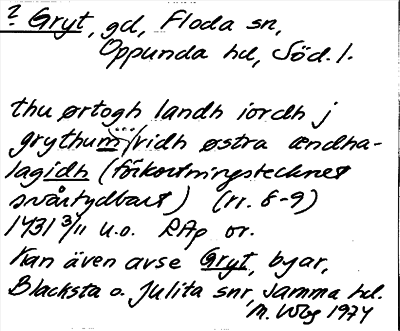 ? Gryt, gd, Floda sn,
Oppunda hd, Söd. l.
thu ørtogh landh iordh j
grythum vidh østra ændha-
lagidh (förkortningstecknet
svårtydbart) (rr. 8-9)
1431 3/11 u.o. RAp or.
Kan även avse Gryt, byar,
Blacksta o. Julita snr, samma hd.
M. Wbg 1974